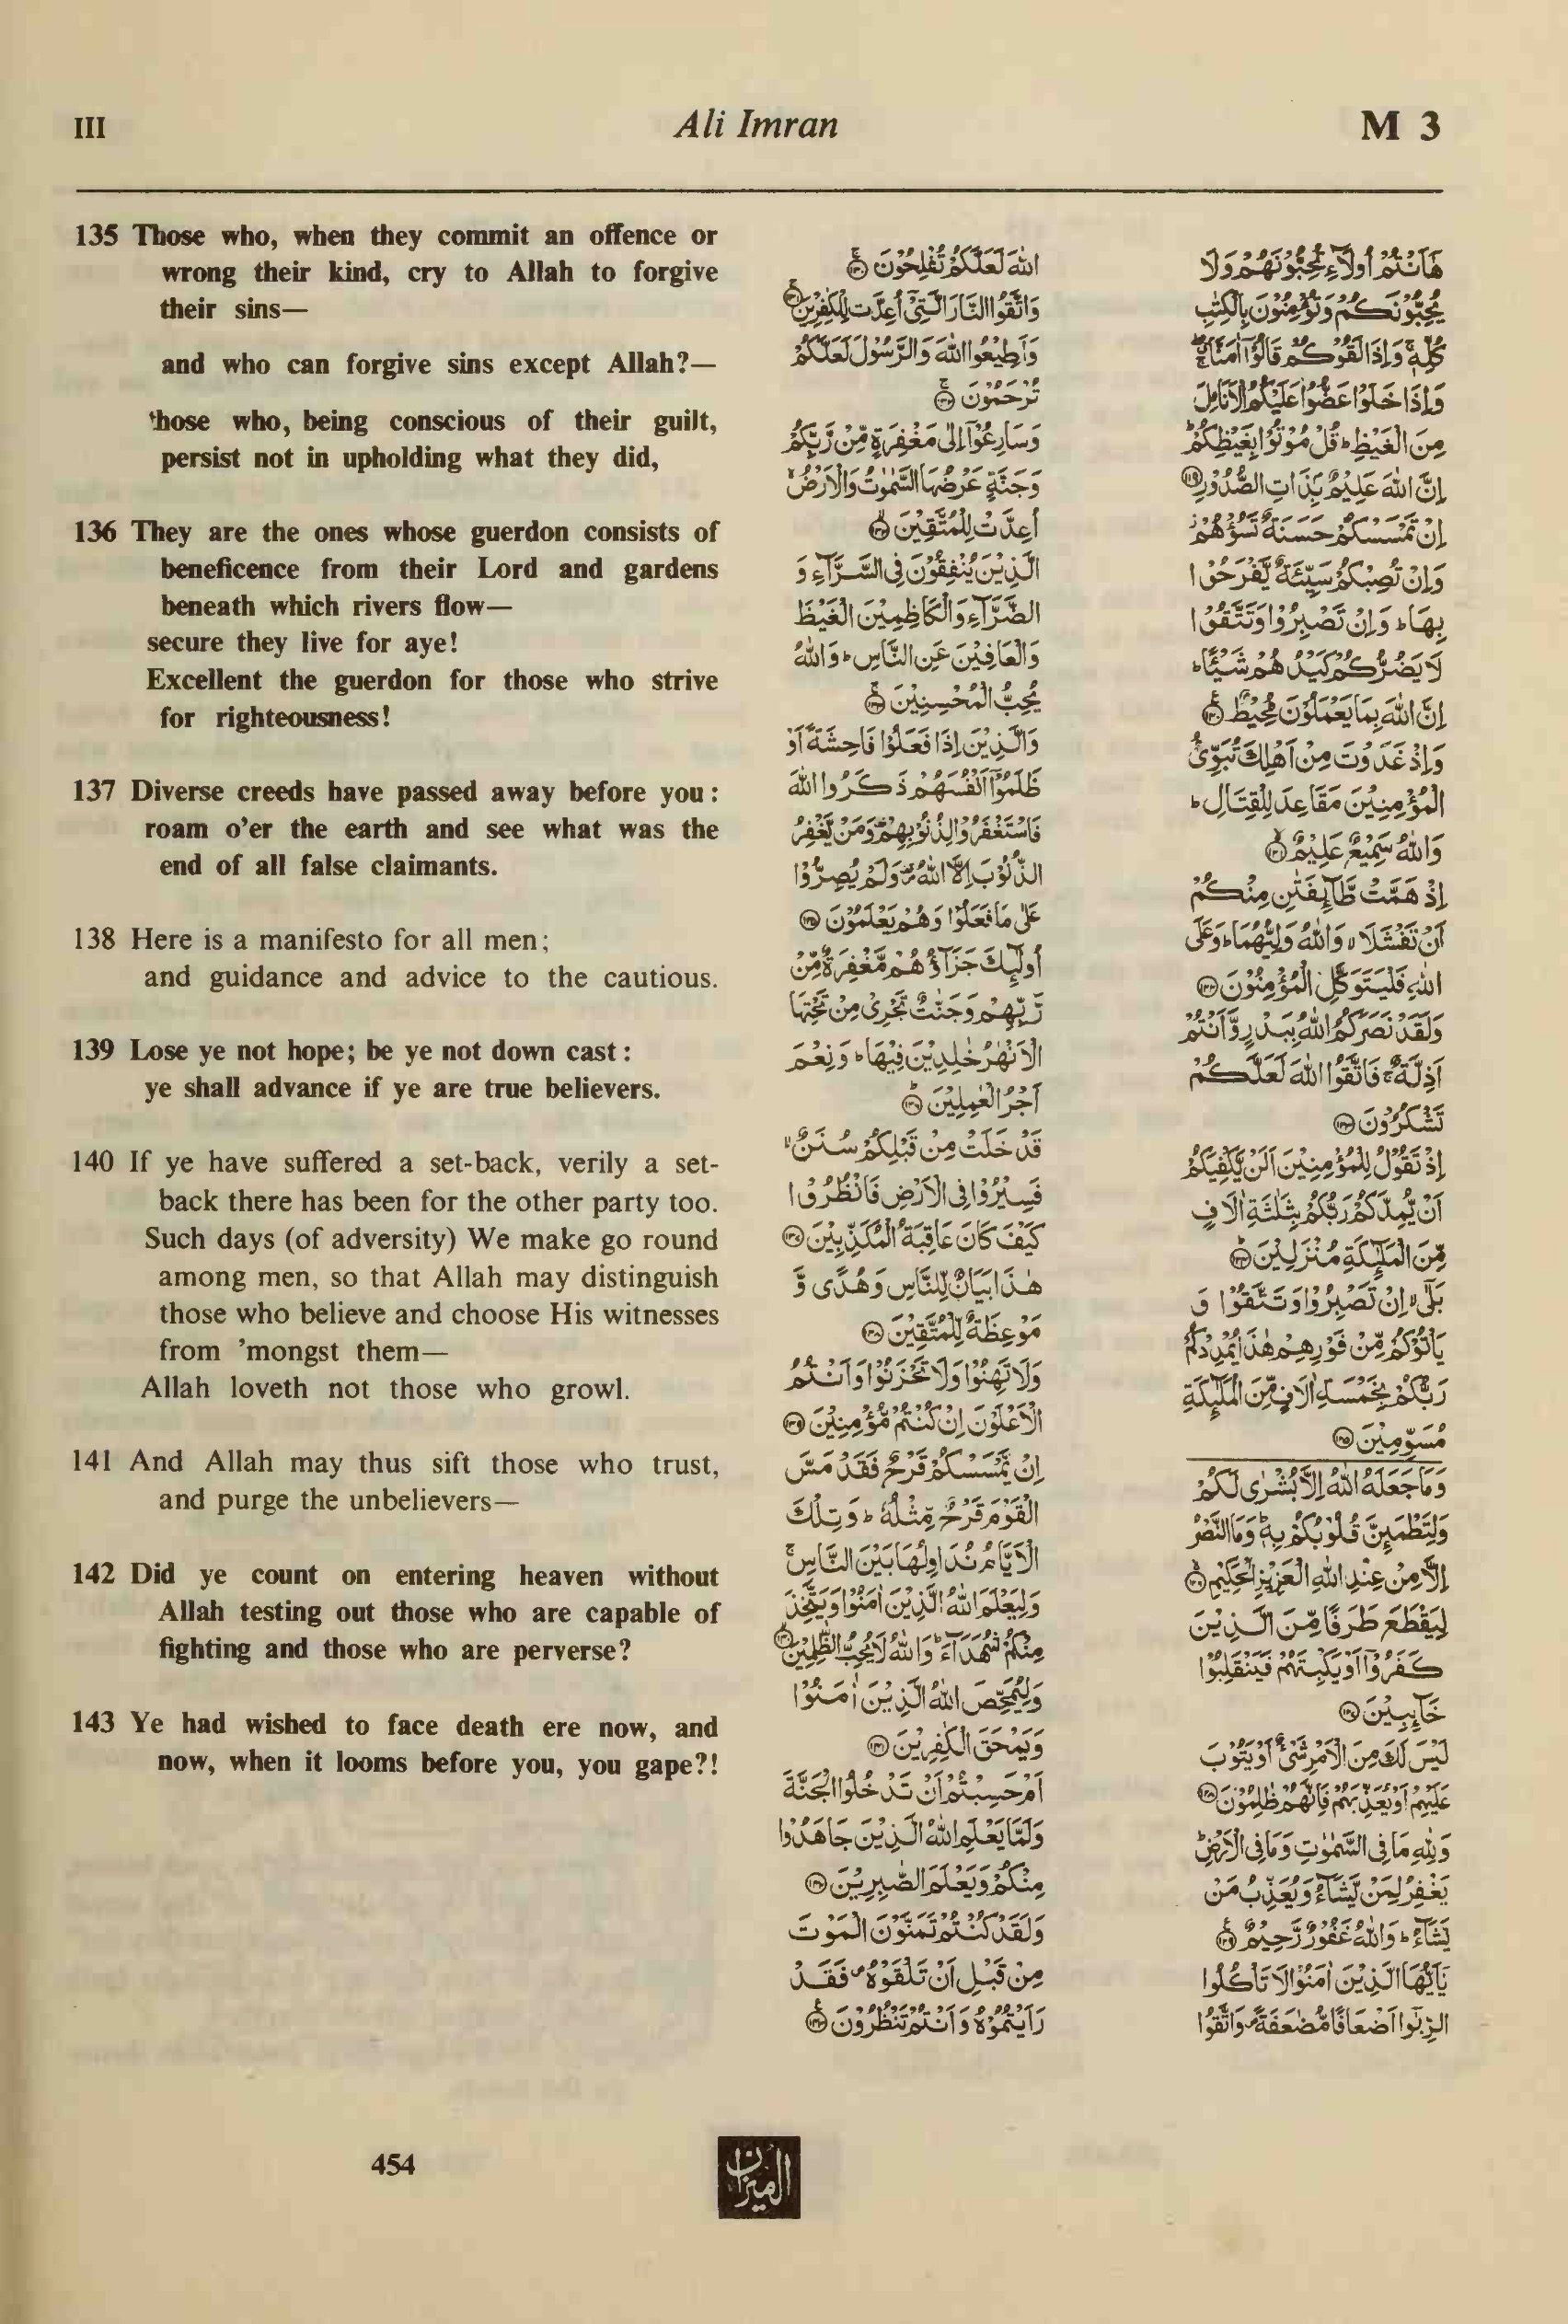 III
Ali Imran
M 3
135 Those who, when they commit an offence or
wrong their kind, cry to Allah to forgive
their sins—
and who can forgive sins except Allah?—
those who, being conscious of their guilt,
persist not in upholding what they did,
136 They are the ones whose guerdon consists of
beneficence from their Lord and gardens
beneath which rivers flow—
secure they live for aye!
Excellent the guerdon for those who strive
for righteousness!
137 Diverse creeds have passed away before you:
roam o'er the earth and see what was the
end of all false claimants.
138 Here is a manifesto for all men;
and guidance and advice to the cautious.
139 Lose ye not hope; be ye not down cast:
ye shall advance if ye are true believers.
140 If ye have suffered a set-back, verily a set-
back there has been for the other party too.
Such days (of adversity) We make go round
among men, so that Allah may distinguish
those who believe and choose His witnesses
from 'mongst them—
Allah loveth not those who growl.
141 And Allah may thus sift those who trust,
and purge the unbelievers—
142 Did ye count on entering heaven without
Allah testing out those who are capable of
fighting and those who are perverse?
143 Ye had wished to face death ere now, and
now, when it looms before you, you gape?!
هَآاَنْتُمْ اُولَآءِ تُحِبُّوْنَهُمْ وَلَا
يُحِبُّوْنَكُمْ وَتُؤْمِنُوْنَ بِالْكِتٰبِ
كُلِّهٖ ۚ وَاِذَا لَقُوْكُمْ قَالُوْٓا اٰمَنَّا ۖۚ
وَاِذَا خَلَوْا عَضُّوْا عَلَيْكُمُ الْاَنَامِلَ
مِنَ الْغَيْظِ ؕ قُلْ مُوْتُوْا بِغَيْظِكُمْ ؕ
اِنَّ اللّٰهَ عَلِيْمٌۢ بِذَاتِ الصُّدُوْرِ ۝۱۱۹
اِنْ تَمْسَسْكُمْ حَسَنَةٌ تَسُؤْهُمْ ۫
وَاِنْ تُصِبْكُمْ سَيِّئَةٌ يَّفْرَحُوْا
بِهَا ؕ وَاِنْ تَصْبِرُوْا وَتَتَّقُوْا
لَا يَضُرُّكُمْ كَيْدُهُمْ شَيْئًا ؕ
اِنَّ اللّٰهَ بِمَا يَعْمَلُوْنَ مُحِيْطٌ ۝۱۲۰
وَاِذْ غَدَوْتَ مِنْ اَهْلِكَ تُبَوِّئُ
الْمُؤْمِنِيْنَ مَقَاعِدَ لِلْقِتَالِ ؕ
وَاللّٰهُ سَمِيْعٌ عَلِيْمٌ ۝۱۲۱
اِذْ هَمَّتْ طَّآئِفَتٰنِ مِنْكُمْ
اَنْ تَفْشَلَا ۙ وَاللّٰهُ وَلِيُّهُمَا ؕ وَعَلَى
اللّٰهِ فَلْيَتَوَكَّلِ الْمُؤْمِنُوْنَ ۝۱۲۲
وَلَقَدْ نَصَرَكُمُ اللّٰهُ بِبَدْرٍ وَّاَنْتُمْ
اَذِلَّةٌ ۚ فَاتَّقُوا اللّٰهَ لَعَلَّكُمْ
تَشْكُرُوْنَ ۝۱۲۳
اِذْ تَقُوْلُ لِلْمُؤْمِنِيْنَ اَلَنْ يَّكْفِيَكُمْ
اَنْ يُّمِدَّكُمْ رَبُّكُمْ بِثَلٰثَةِ اٰلَافٍ
مِّنَ الْمَلٰٓئِكَةِ مُنْزَلِيْنَ ۝۱۲۴
بَلٰٓى ۙ اِنْ تَصْبِرُوْا وَتَتَّقُوْا وَ
يَاْتُوْكُمْ مِّنْ فَوْرِهِمْ هٰذَا يُمْدِدْكُمْ
رَبُّكُمْ بِخَمْسَةِ اٰلَافٍ مِّنَ الْمَلٰٓئِكَةِ
مُسَوِّمِيْنَ ۝۱۲۵
وَمَا جَعَلَهُ اللّٰهُ اِلَّا بُشْرٰى لَكُمْ
وَلِتَطْمَئِنَّ قُلُوْبُكُمْ بِهٖ ؕ وَمَا النَّصْرُ
اِلَّا مِنْ عِنْدِ اللّٰهِ الْعَزِيْزِ الْحَكِيْمِ ۝۱۲۶
لِيَقْطَعَ طَرَفًا مِّنَ الَّذِيْنَ
كَفَرُوْٓا اَوْ يَكْبِتَهُمْ فَيَنْقَلِبُوْا
خَآئِبِيْنَ ۝۱۲۷
لَيْسَ لَكَ مِنَ الْاَمْرِ شَيْءٌ اَوْ يَتُوْبَ
عَلَيْهِمْ اَوْ يُعَذِّبَهُمْ فَاِنَّهُمْ ظٰلِمُوْنَ ۝۱۲۸
وَلِلّٰهِ مَا فِى السَّمٰوٰتِ وَمَا فِى الْاَرْضِ ؕ
يَغْفِرُ لِمَنْ يَّشَآءُ وَيُعَذِّبُ مَنْ
يَّشَآءُ ؕ وَاللّٰهُ غَفُوْرٌ رَّحِيْمٌ ۝۱۲۹
يٰٓاَيُّهَا الَّذِيْنَ اٰمَنُوْا لَا تَاْكُلُوا
الرِّبٰٓوا اَضْعَافًا مُّضٰعَفَةً ۪ وَاتَّقُوا
اللّٰهَ لَعَلَّكُمْ تُفْلِحُوْنَ ۝۱۳۰
وَاتَّقُوا النَّارَ الَّتِىْٓ اُعِدَّتْ لِلْكٰفِرِيْنَ ۝۱۳۱
وَاَطِيْعُوا اللّٰهَ وَالرَّسُوْلَ لَعَلَّكُمْ
تُرْحَمُوْنَ ۝۱۳۲
وَسَارِعُوْٓا اِلٰى مَغْفِرَةٍ مِّنْ رَّبِّكُمْ
وَجَنَّةٍ عَرْضُهَا السَّمٰوٰتُ وَالْاَرْضُ ۙ
اُعِدَّتْ لِلْمُتَّقِيْنَ ۝۱۳۳
الَّذِيْنَ يُنْفِقُوْنَ فِى السَّرَّآءِ وَ
الضَّرَّآءِ وَالْكَاظِمِيْنَ الْغَيْظَ
وَالْعَافِيْنَ عَنِ النَّاسِ ؕ وَاللّٰهُ
يُحِبُّ الْمُحْسِنِيْنَ ۝۱۳۴
وَالَّذِيْنَ اِذَا فَعَلُوْا فَاحِشَةً اَوْ
ظَلَمُوْٓا اَنْفُسَهُمْ ذَكَرُوا اللّٰهَ
فَاسْتَغْفَرُوْا لِذُنُوْبِهِمْ ۪ وَمَنْ يَّغْفِرُ
الذُّنُوْبَ اِلَّا اللّٰهُ ۪ وَلَمْ يُصِرُّوْا
عَلٰى مَا فَعَلُوْا وَهُمْ يَعْلَمُوْنَ ۝۱۳۵
اُولٰٓئِكَ جَزَآؤُهُمْ مَّغْفِرَةٌ مِّنْ
رَّبِّهِمْ وَجَنّٰتٌ تَجْرِىْ مِنْ تَحْتِهَا
الْاَنْهٰرُ خٰلِدِيْنَ فِيْهَا ؕ وَنِعْمَ
اَجْرُ الْعٰمِلِيْنَ ۝۱۳۶
قَدْ خَلَتْ مِنْ قَبْلِكُمْ سُنَنٌ ۙ
فَسِيْرُوْا فِى الْاَرْضِ فَانْظُرُوْا
كَيْفَ كَانَ عَاقِبَةُ الْمُكَذِّبِيْنَ ۝۱۳۷
هٰذَا بَيَانٌ لِّلنَّاسِ وَهُدًى وَّ
مَوْعِظَةٌ لِّلْمُتَّقِيْنَ ۝۱۳۸
وَلَا تَهِنُوْا وَلَا تَحْزَنُوْا وَاَنْتُمُ
الْاَعْلَوْنَ اِنْ كُنْتُمْ مُّؤْمِنِيْنَ ۝۱۳۹
اِنْ يَّمْسَسْكُمْ قَرْحٌ فَقَدْ مَسَّ
الْقَوْمَ قَرْحٌ مِّثْلُهٗ ؕ وَتِلْكَ
الْاَيَّامُ نُدَاوِلُهَا بَيْنَ النَّاسِ ۚ
وَلِيَعْلَمَ اللّٰهُ الَّذِيْنَ اٰمَنُوْا وَيَتَّخِذَ
مِنْكُمْ شُهَدَآءَ ؕ وَاللّٰهُ لَا يُحِبُّ الظّٰلِمِيْنَ ۝۱۴۰
وَلِيُمَحِّصَ اللّٰهُ الَّذِيْنَ اٰمَنُوْا
وَيَمْحَقَ الْكٰفِرِيْنَ ۝۱۴۱
اَمْ حَسِبْتُمْ اَنْ تَدْخُلُوا الْجَنَّةَ
وَلَمَّا يَعْلَمِ اللّٰهُ الَّذِيْنَ جَاهَدُوْا
مِنْكُمْ وَيَعْلَمَ الصّٰبِرِيْنَ ۝۱۴۲
وَلَقَدْ كُنْتُمْ تَمَنَّوْنَ الْمَوْتَ
مِنْ قَبْلِ اَنْ تَلْقَوْهُ ۪ فَقَدْ
رَاَيْتُمُوْهُ وَاَنْتُمْ تَنْظُرُوْنَ ۝۱۴۳
454
الميزان